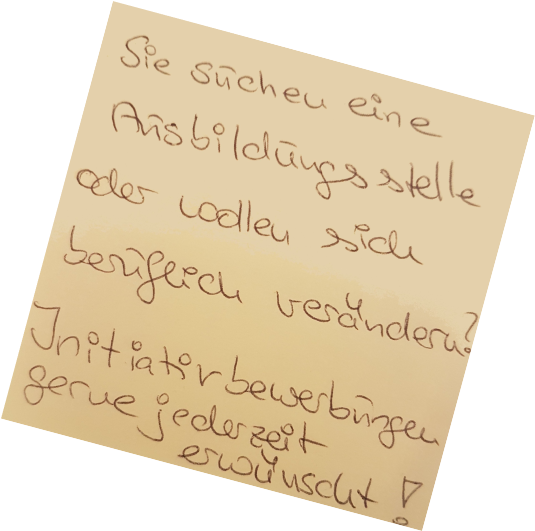 Sie suchen eine
Ausbildungsstelle
oder wollen sich
beruflich verändern?
Initiativbewerbungen
gerne jederzeit
erwünscht!